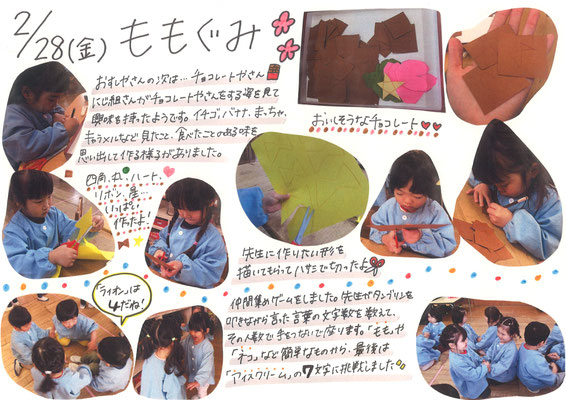 2/28(金) ももぐみ
おすしやさんの次は…チョコレートやさん
にじ組さんがチョコレートやさんをする姿を見て
興味を持ったようです。イチゴ、バナナ、まっちゃ、
キャラメルなど見たこと、食べたことのある味を
思い出して作る様子がありました。
おいしそうなチョコレート
四角、丸、ハート、
リボン、星…
いっぱい
作ったよ!
先生に作りたい形を
描いてもらってハサミで切ったよ
「ライオン」は
4だね!
仲間集めゲームをしました。先生がタンブリンを
叩きながら言った言葉の文字数を数えて、
その人数で手をつないで座ります。「もも」や
「ネコ」など簡単なものから、最後は
「アイスクリーム」の7文字に挑戦しました